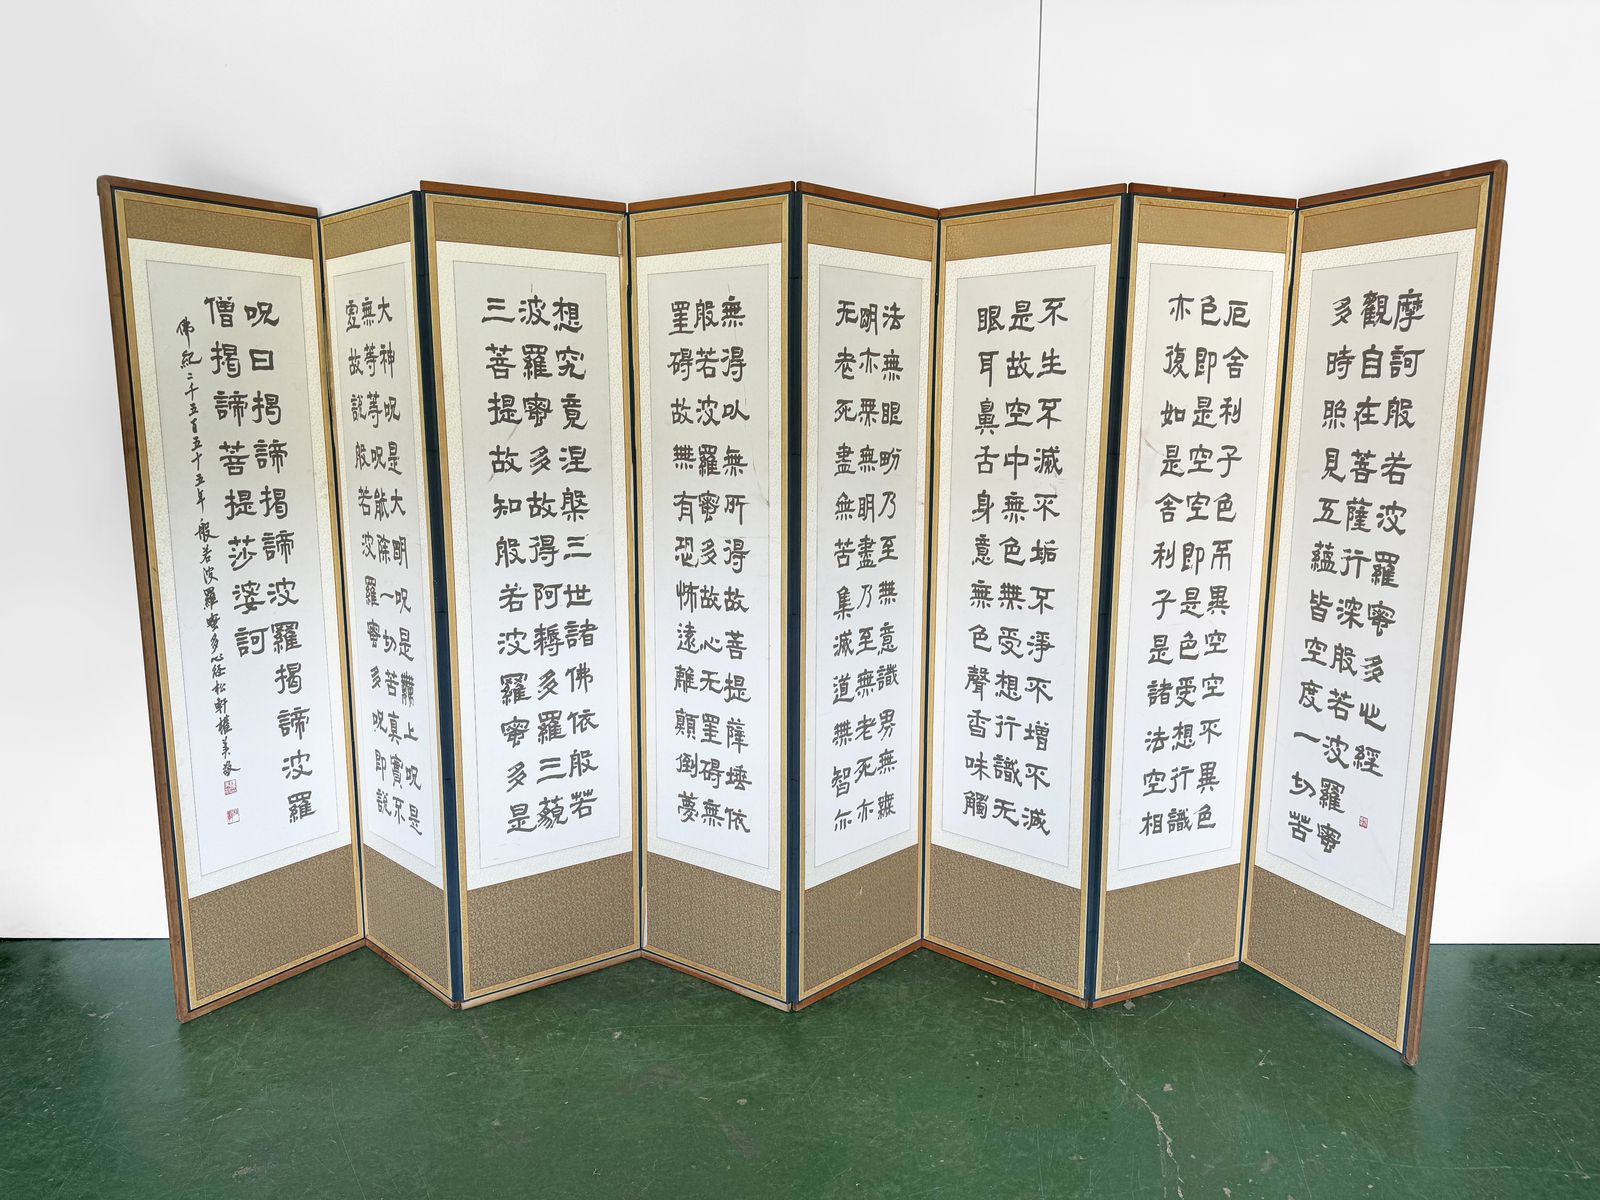 摩訶般若波羅蜜多心經
觀自在菩薩行深般若波羅蜜
多時照見五蘊皆空度一切苦
厄舍利子色不異空空不異色
色即是空空即是色受想行識
亦復如是舍利子是諸法空相
不生不滅不垢不淨不增不減
是故空中無色無受想行識无
眼耳鼻舌身意無色聲香味觸
法無眼界乃至無意識界無無
明亦無無明盡乃至無老死亦
无老死盡無苦集滅道無智亦
無得以無所得故菩提薩埵依
般若波羅蜜多故心无罣礙無
罣礙故無有恐怖遠離顛倒夢
想究竟涅槃三世諸佛依般若
波羅蜜多故得阿耨多羅三藐
三菩提故知般若波羅蜜多是
大神呪是大明呪是無上呪是
無等等呪能除一切苦真實不
虛故說般若波羅蜜多呪即說
呪曰揭諦揭諦波羅揭諦波羅
僧揭諦菩提莎婆訶
佛紀二千五百五十五年 般若波羅蜜多心経松軒權美敬